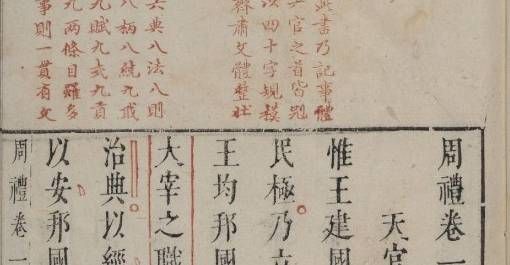 此書乃記事體
六官之首皆冠
以四十字規模
齊肅文體整壯
六典八法八則
八柄八統九職
九賦九式九貢
九兩條目雖多
事則一貫有文
周禮卷一
天官
惟王建國
民極乃立
王均邦國
大宰之職
治典以經
以安邦國
周禮卷一